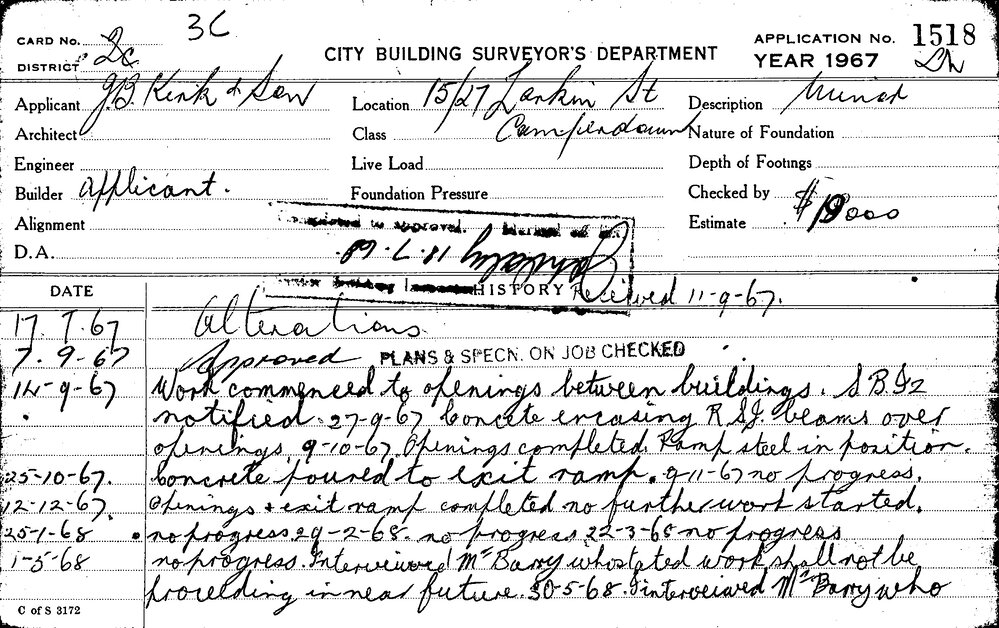 3C
CARD No. 2c
CITY BUILDING SURVEYOR'S DEPARTMENT
APPLICATION No. 1518
DISTRICT
YEAR 1967
Applicant J.B. Kirk & Son
Location 15/27 Larkin St
Camperdown
Description Minor
Architect
Class
Nature of Foundation
Engineer
Live Load
Depth of Footings
Builder Applicant.
Foundation Pressure
Checked by
Alignment
Estimate $19000
D.A.
to approval.
18.7.68.
HISTORY Received 11-9-67.
DATE
17.7.67 Alterations.
7.9.67 Approved PLANS & SPECN. ON JOB CHECKED
14-9-67 Work commenced to openings between buildings. S.B.I2
notified. 27-9-67 Concrete encasing R.S.J. beams over
openings. 9-10-67. Openings completed. Ramp steel in position.
25-10-67. Concrete poured to exit ramp. 9-11-67 no progress.
12-12-67. Openings & exit ramp completed no further work started.
25-1-68 no progress 29-2-68. no progress 22-3-68 no progress
1-5-68 no progress. Interviewed Mr Barry who stated work shall not be
proceeding in near future. 30-5-68. Interviewed Mr Barry who
C of S 3172